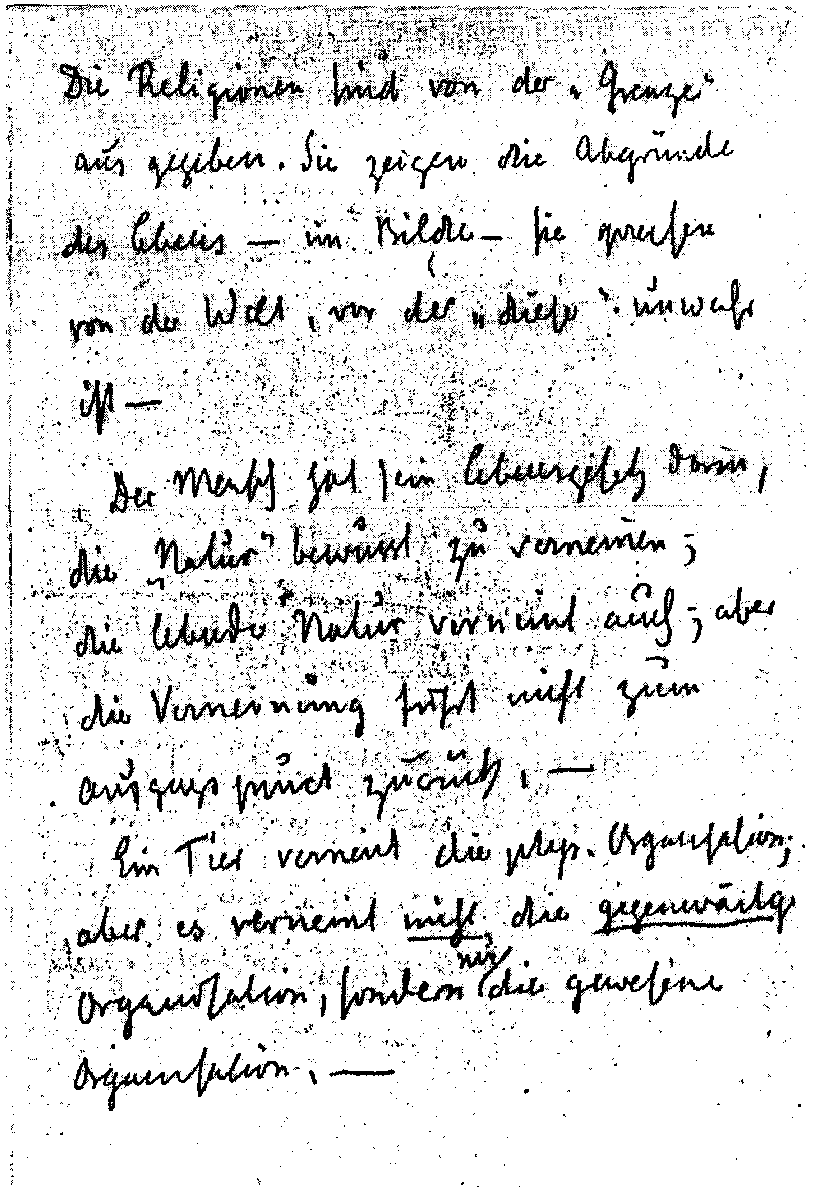 Die Religionen sind von der „Grenze"
aus gegeben. Sie zeigen die Abgründe
des Lebens — im Bilde — sie sprechen
von der Welt, vor der „diese" unwahr
ist —
Der Mensch hat sein Lebensgesetz darin,
die „Natur" bewusst zu verneinen;
die lebende Natur verneint auch; aber
die Verneinung führt nicht zum
Ausgangspunct zurück. —
Ein Tier verneint die phys. Organisation;
aber es verneint nicht die gegenwärtige
Organisation, sondern nur die gewesene
Organisation. —